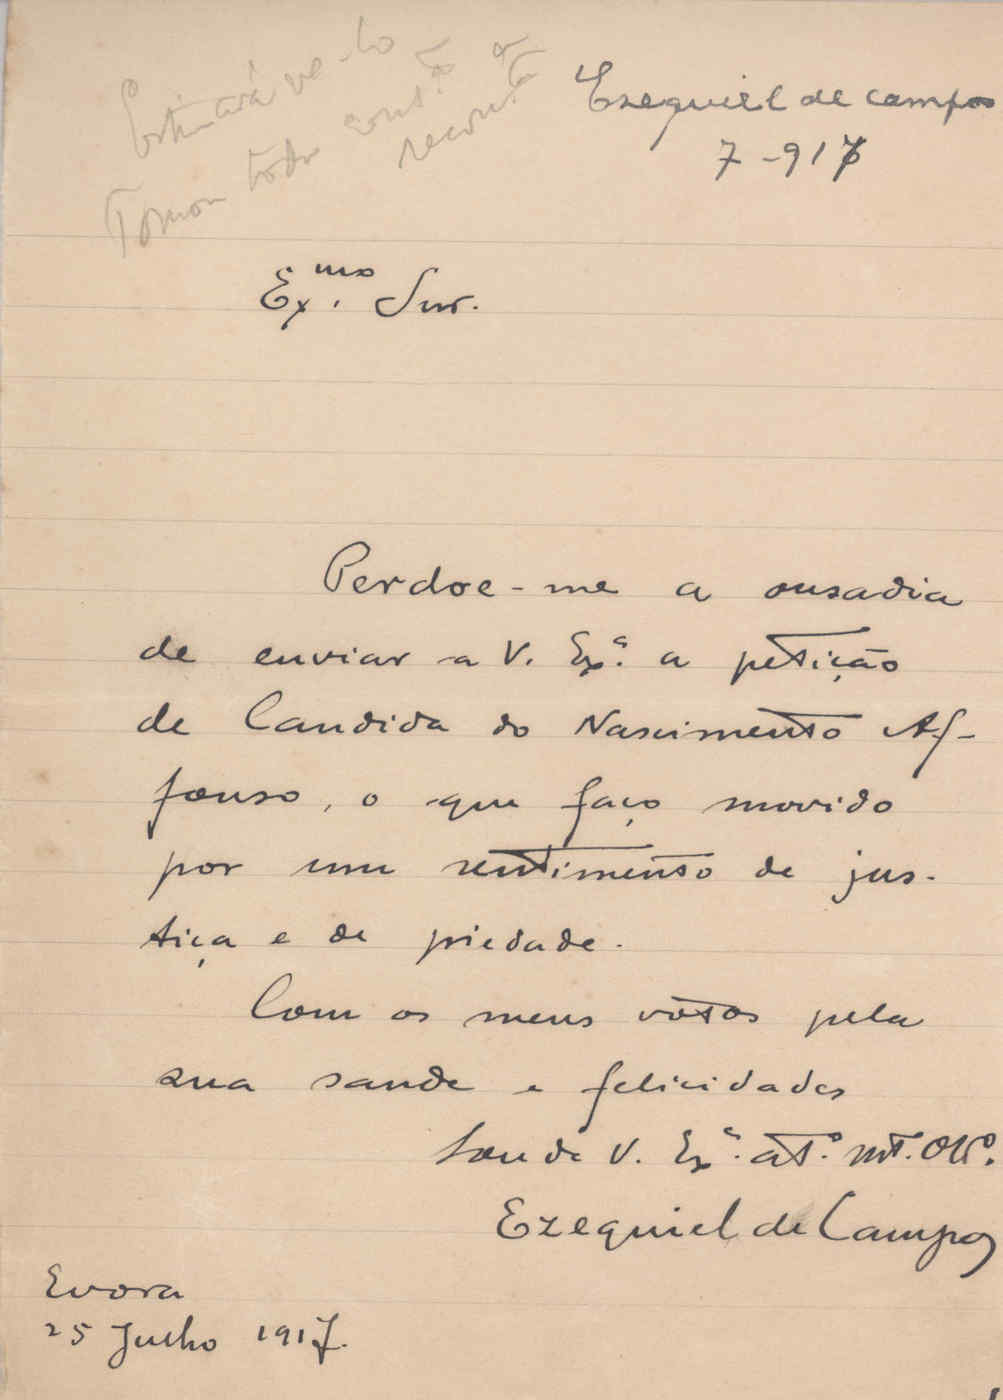 Estimará ve-lo
Tomou toda
Ezequiel de campos
7-917
Ex.mo Snr.
Perdoe-me a ousadia
de enviar a V. Ex.a a petição
de Candida do Nascimento Af-
fonso, o que faço movido
por um sentimento de jus-
tiça e de piedade.
Com os meus votos pela
sua saude e felicidades
Sou de V. Ex.a at.o mt. Obr.o
Ezequiel de Campos
Evora
25 Julho 1917.